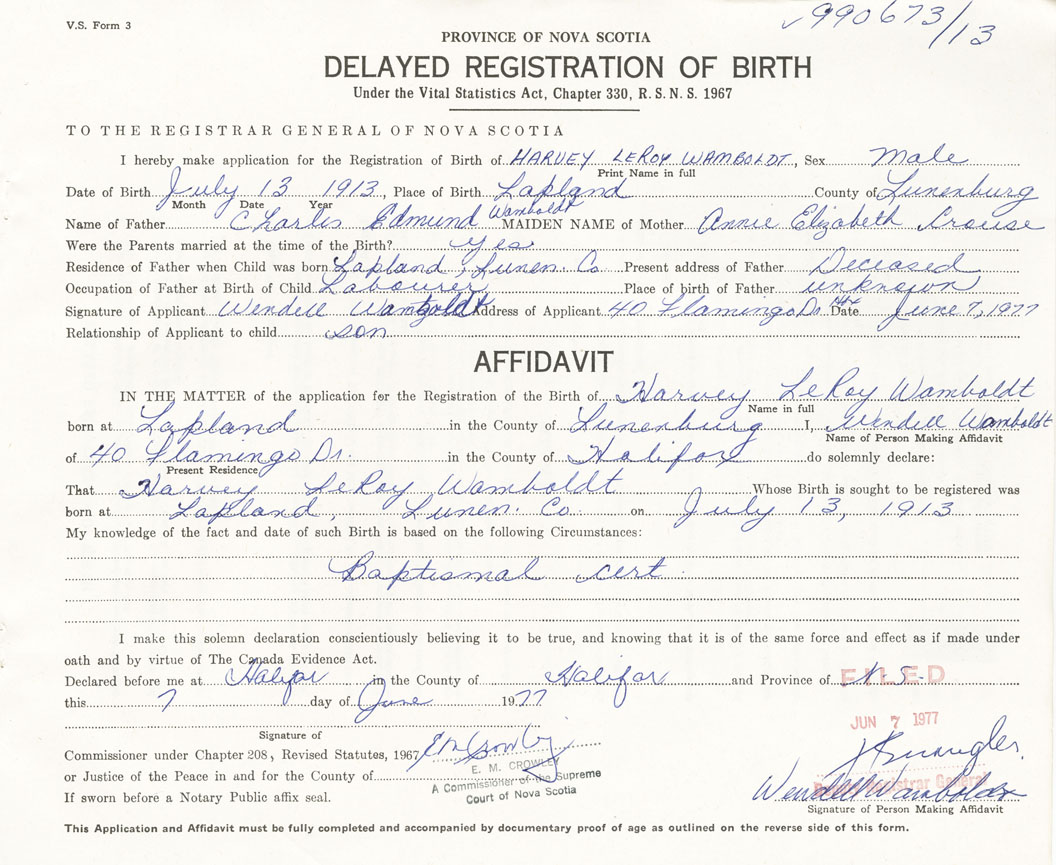 V.S. Form 3
990673/13
PROVINCE OF NOVA SCOTIA
DELAYED REGISTRATION OF BIRTH
Under the Vital Statistics Act, Chapter 330, R.S.N.S. 1967
TO THE REGISTRAR GENERAL OF NOVA SCOTIA
I hereby make application for the Registration of Birth of HARVEY LEROY WAMBOLDT, Sex Male
Print Name in full
Date of Birth July 13 1913, Place of Birth Lapland County of Lunenburg
Month Date Year
Name of Father Charles Edmund Wamboldt MAIDEN NAME of Mother Annie Elizabeth Crouse
Were the Parents married at the time of the Birth? yes
Residence of Father when Child was born Lapland, Lunen. Co. Present address of Father Deceased
Occupation of Father at Birth of Child Labourer Place of birth of Father unknown
Signature of Applicant Wendell Wamboldt Address of Applicant 40 Flamingo Dr. Hfx Date June 7, 1977
Relationship of Applicant to child son
AFFIDAVIT
IN THE MATTER of the application for the Registration of the Birth of Harvey LeRoy Wamboldt
Name in full
born at Lapland in the County of Lunenburg I, Wendell Wamboldt
Name of Person Making Affidavit
of 40 Flamingo Dr. in the County of Halifax do solemnly declare:
Present Residence
That Harvey LeRoy Wamboldt Whose Birth is sought to be registered was
born at Lapland, Lunen. Co. on July 13, 1913
My knowledge of the fact and date of such Birth is based on the following Circumstances:
Baptismal cert.
I make this solemn declaration conscientiously believing it to be true, and knowing that it is of the same force and effect as if made under
oath and by virtue of The Canada Evidence Act.
Declared before me at Halifax in the County of Halifax and Province of N.S.
FILED
this 7 day of June 1977
JUN 7 1977
Signature of
Commissioner under Chapter 208, Revised Statutes, 1967 E M Crowley
E. M. CROWLEY
or Justice of the Peace in and for the County of
A Commissioner of the Supreme
Court of Nova Scotia
Registrar General
Wendell Wamboldt
If sworn before a Notary Public affix seal.
Signature of Person Making Affidavit
This Application and Affidavit must be fully completed and accompanied by documentary proof of age as outlined on the reverse side of this form.